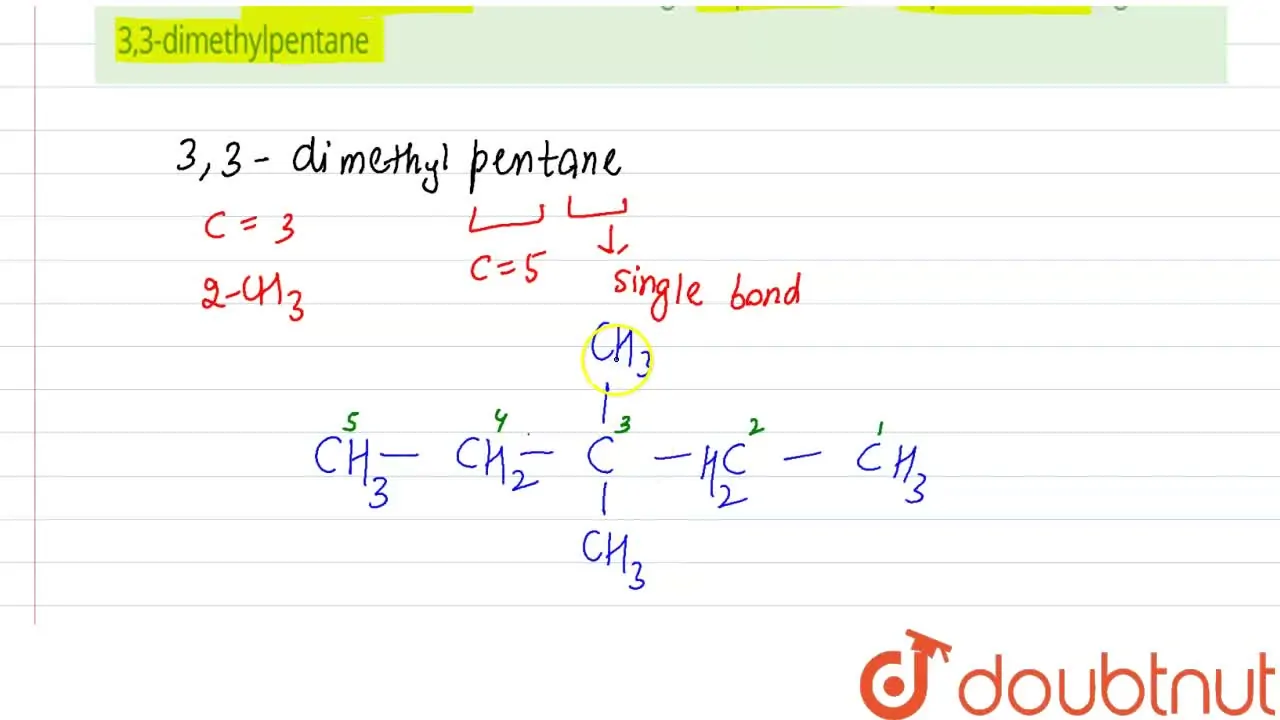 3,3-dimethylpentane
3,3- dimethyl pentane
C = 3
C=5
2-CH3
single bond
CH3
5 4 3 2 1
CH3 — CH2 — C — H2C — CH3
CH3
doubtnut